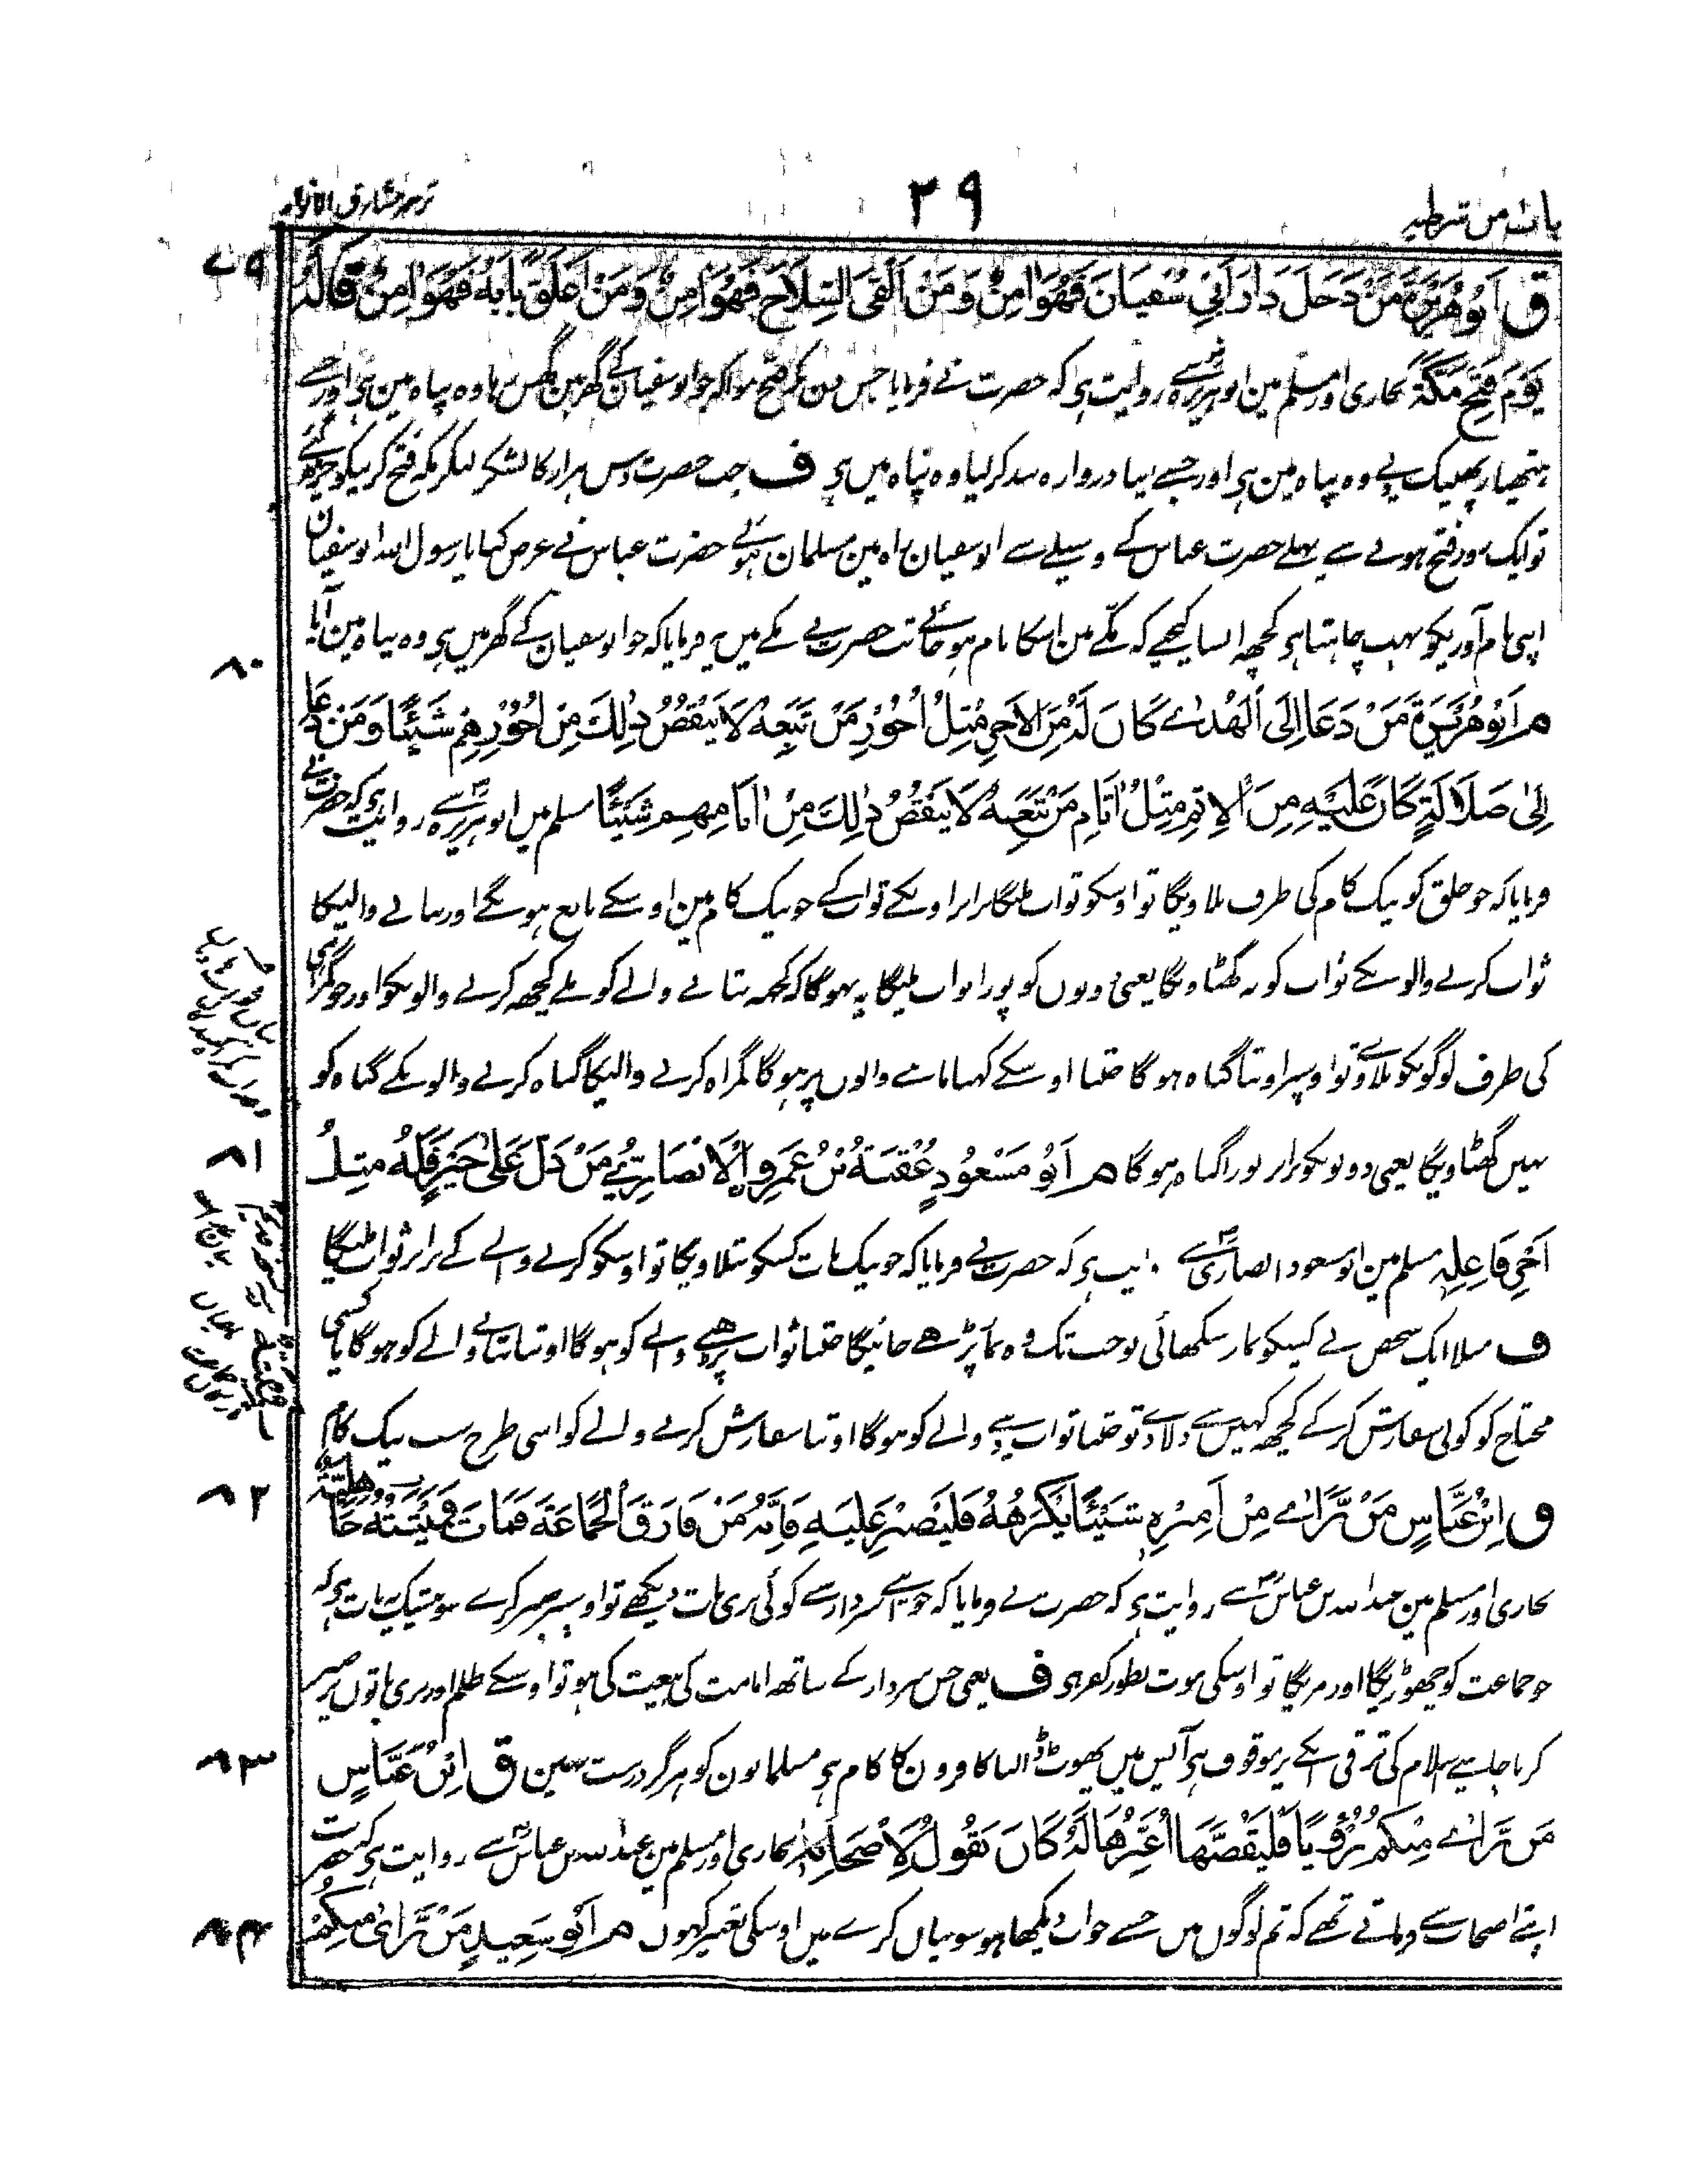 باب من شرطیہ
۲۹
ترجمہ مشارق الانوار
ق اَبُوْهُرَيْرَةَ مَنْ دَخَلَ دَارَ اَبِيْ سُفْيَانَ فَهُوَ اٰمِنٌ وَمَنْ اَلْقَى السِّلَاحَ فَهُوَ اٰمِنٌ وَمَنْ اَغْلَقَ بَابَهٗ فَهُوَ اٰمِنٌ قَالَهٗ
۷۹
يَوْمَ فَتْحِ مَكَّةَ بخاری اور مسلم مین ابوہریرہؓ سے روایت ہی کہ حضرت نے فرمایا جس دن مکہ فتح ہوا کہ جو ابوسفیان کے گھر مین گھس رہا وہ پناہ مین ہی اور جسے
ہتھیار پھینک دیے وہ پناہ مین ہی اور جسے اپنا دروازہ بند کر لیا وہ پناہ میں ہی ف جب حضرت دس ہزار کا لشکر لیکر مکہ فتح کرنیکو چڑھ گئے
تو ایک روز فتح ہونے سے پہلے حضرت عباس کے وسیلے سے ابوسفیان راہ مین مسلمان ہوئے حضرت عباس نے عرض کیا یا رسول اللہ ابوسفیان
اپنی نام آوریکو بہت چاہتا ہی کچھ ایسا کیجیے کہ مکّے مین اسکا نام ہو جائے تب حضرت نے مکے میں یہ فرمایا کہ جو ابوسفیان کے گھر میں ہی وہ پناہ مین آیا
۸۰
م اَبُوْهُرَيْرَةَ مَنْ دَعَا اِلَى الْهُدٰى كَانَ لَهٗ مِنَ الْاَجْرِ مِثْلُ اُجُوْرِ مَنْ تَبِعَهٗ لَا يَنْقُصُ ذٰلِكَ مِنْ اُجُوْرِهِمْ شَيْئًا وَمَنْ دَعَا
اِلٰى ضَلَالَةٍ كَانَ عَلَيْهِ مِنَ الْاِثْمِ مِثْلُ اٰثَامِ مَنْ تَبِعَهٗ لَا يَنْقُصُ ذٰلِكَ مِنْ اٰثَامِهِمْ شَيْئًا مسلم میں ابوہریرہؓ سے روایت ہی کہ حضرت نے
فرمایا کہ جو خلق کو نیک کام کی طرف بلاویگا تو اوسکو ثواب ملیگا برابر اونکے ثواب کے جو نیک کام مین اوسکے تابع ہونگے اور بتانے والیکا
ثواب کرنے والونکے ثواب کو نہ گھٹاویگا یعنی دونوں کو پورا ثواب ملیگا یہ نہوگا کہ کچھ بتانے والے کو ملے کچھ کرنے والونکو اور جو گمراہی
کی طرف لوگونکو بلاوے تو اوسپر اوتنا گناہ ہوگا جتنا اوسکے کہنا ماننے والوں پر ہوگا گمراہ کرنے والیکا گناہ کرنے والونکے گناہ کو
نہیں گھٹاویگا یعنی دونونکو برابر پورا گناہ ہوگا م اَبُوْ مَسْعُوْدٍ عُقْبَةُ بْنُ عَمْرٍو الْاَنْصَارِيُّ مَنْ دَلَّ عَلٰى خَيْرٍ فَلَهٗ مِثْلُ
۸۱
اَجْرِ فَاعِلِهٖ مسلم مین ابو مسعود انصاریؓ سے روایت ہی کہ حضرت نے فرمایا کہ جو نیک بات کسیکو بتلاویگا تو اوسکو کرنے والے کے برابر ثواب ملیگا
ف مثلا ایک شخص نے کسیکو نماز سکھائی تو جب تک وہ نماز پڑھے جائیگا جتنا ثواب پڑھنے والے کو ہوگا اوتنا بتانے والے کو ہوگا یا کسی
محتاج کو کوئی سفارش کرکے کچھ کہیں سے دلادے تو جتنا ثواب دینے والے کو ہوگا اوتنا سفارش کرنے والے کو اسی طرح سب نیک کام
ق اِبْنُ عَبَّاسٍ مَنْ رَّاٰى مِنْ اَمِيْرِهٖ شَيْئًا يَكْرَهُهٗ فَلْيَصْبِرْ عَلَيْهِ فَاِنَّهٗ مَنْ فَارَقَ الْجَمَاعَةَ فَمَاتَ فَمِيْتَتُهٗ جَاهِلِيَّةٌ
۸۲
بخاری اور مسلم مین عبداللہ بن عباسؓ سے روایت ہی کہ حضرت نے فرمایا کہ جو اپنے سردار سے کوئی بری بات دیکھے تو اوسپر صبر کرے سو بیشک یہ بات ہی کہ
جو جماعت کو چھوڑیگا اور مریگا تو اوسکی موت بطور کفر ہی ف یعنی جس سردار کے ساتھ امامت کی بیعت کی ہو تو اوسکے ظلم اور بری باتوں پر صبر
کرنا چاہیے اسلام کی ترقی اسکے پر موقوف ہی آپس میں پھوٹ ڈالنا کافرون کا کام ہی مسلمانون کو ہرگز درست نہین ق اِبْنُ عَبَّاسٍ
۸۳
مَنْ رَّاٰى مِنْكُمْ رُؤْيَا فَلْيَقُصَّهَا اُعَبِّرْهَا لَهٗ كَانَ يَقُوْلُ لِاَصْحَابِهٖ بخاری اور مسلم مین عبداللہ بن عباسؓ سے روایت ہی کہ حضرت
اپنے اصحاب سے فرماتے تھے کہ تم لوگوں میں جسے خواب دیکھا ہو سو بیان کرے میں اوسکی تعبیر کہوں م اَبُوْ سَعِيْدٍ مَنْ رَّاٰى مِنْكُمْ
۸۴